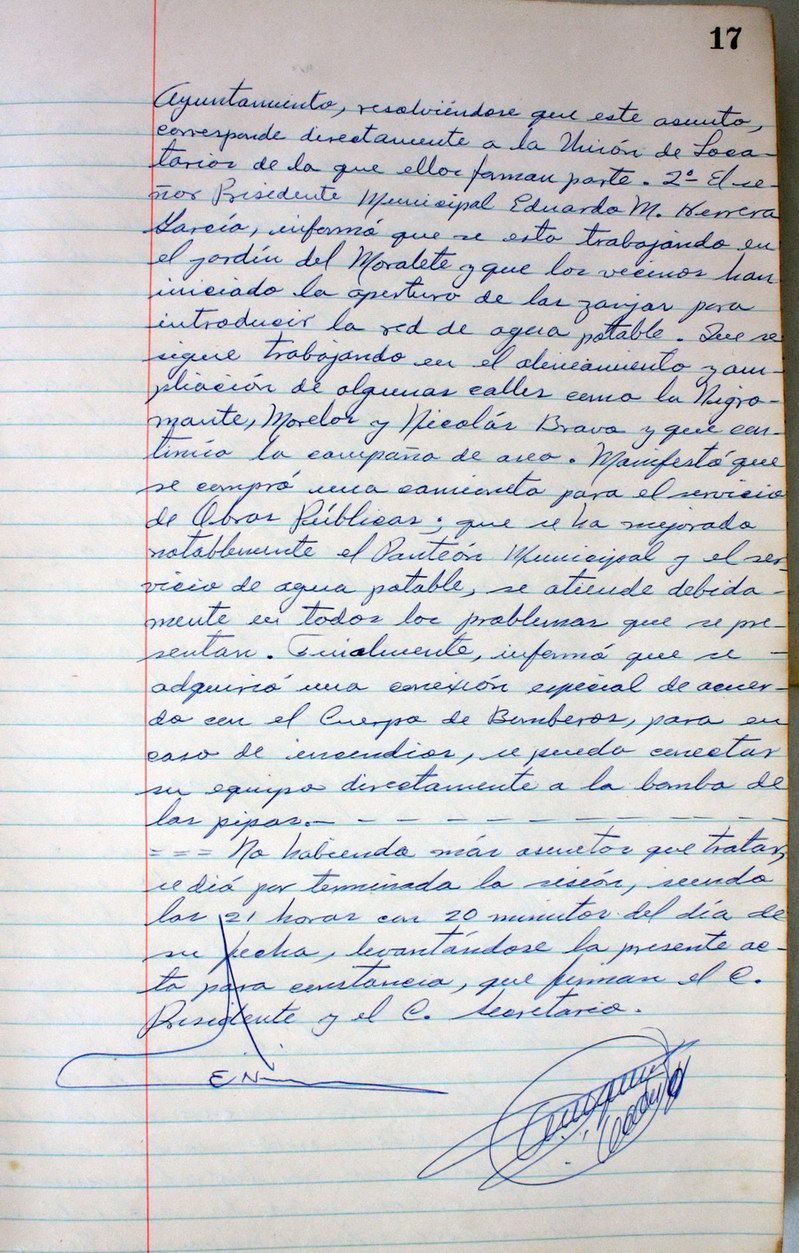 17
Ayuntamiento, resolviéndose que este asunto,
corresponde directamente a la Unión de Loca-
tarios de la que ellos forman parte. 2º El se-
ñor Presidente Municipal Eduardo M. Herrera
García, informó que se esta trabajando en
el jardín del Moralete y que los vecinos han
iniciado la apertura de las zanjas para
introducir la red de agua potable. Que se
sigue trabajando en el alineamiento y am-
pliación de algunas calles como la Nigro-
mante, Morelos y Nicolás Bravo y que con-
tinúa la campaña de aseo. Manifestó que
se compró una camioneta para el servicio
de Obras Públicas; que se ha mejorado
notablemente el Panteón Municipal y el ser-
vicio de agua potable, se atiende debida-
mente en todos los problemas que se pre-
sentan. Finalmente, informó que se -
adquirió una conexión especial de acuer-
do con el Cuerpo de Bomberos, para en
caso de incendios, se pueda conectar
su equipo directamente a la bomba de
las pipas.- - - - - - - - - - - - -
= = = No habiendo más asuntos que tratar,
se dió por terminada la sesión, siendo
las 21 horas con 20 minutos del día de
su fecha, levantándose la presente ac-
ta para constancia, que firman el C.
Presidente y el C. Secretario.